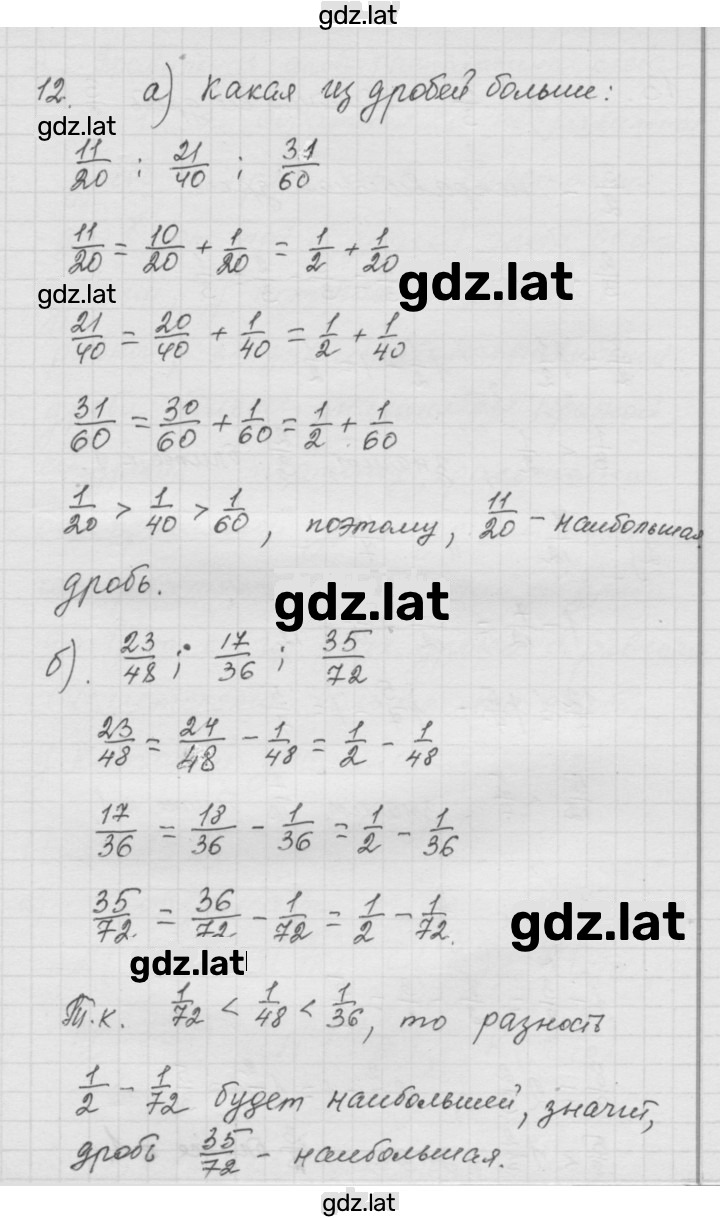 gdz.lat
12. а) Какая из дробей больше:
gdz.lat
11/20 ; 21/40 ; 31/60
11/20 = 10/20 + 1/20 = 1/2 + 1/20
gdz.lat
gdz.lat
21/40 = 20/40 + 1/40 = 1/2 + 1/40
31/60 = 30/60 + 1/60 = 1/2 + 1/60
1/20 > 1/40 > 1/60, поэтому, 11/20 - наибольшая
дробь.
gdz.lat
б). 23/48 ; 17/36 ; 35/72
23/48 = 24/48 - 1/48 = 1/2 - 1/48
17/36 = 18/36 - 1/36 = 1/2 - 1/36
35/72 = 36/72 - 1/72 = 1/2 - 1/72.
gdz.lat
gdz.lat
Т.к. 1/72 < 1/48 < 1/36, то разность
1/2 - 1/72 будет наибольшей, значит,
дробь 35/72 - наибольшая.
gdz.lat